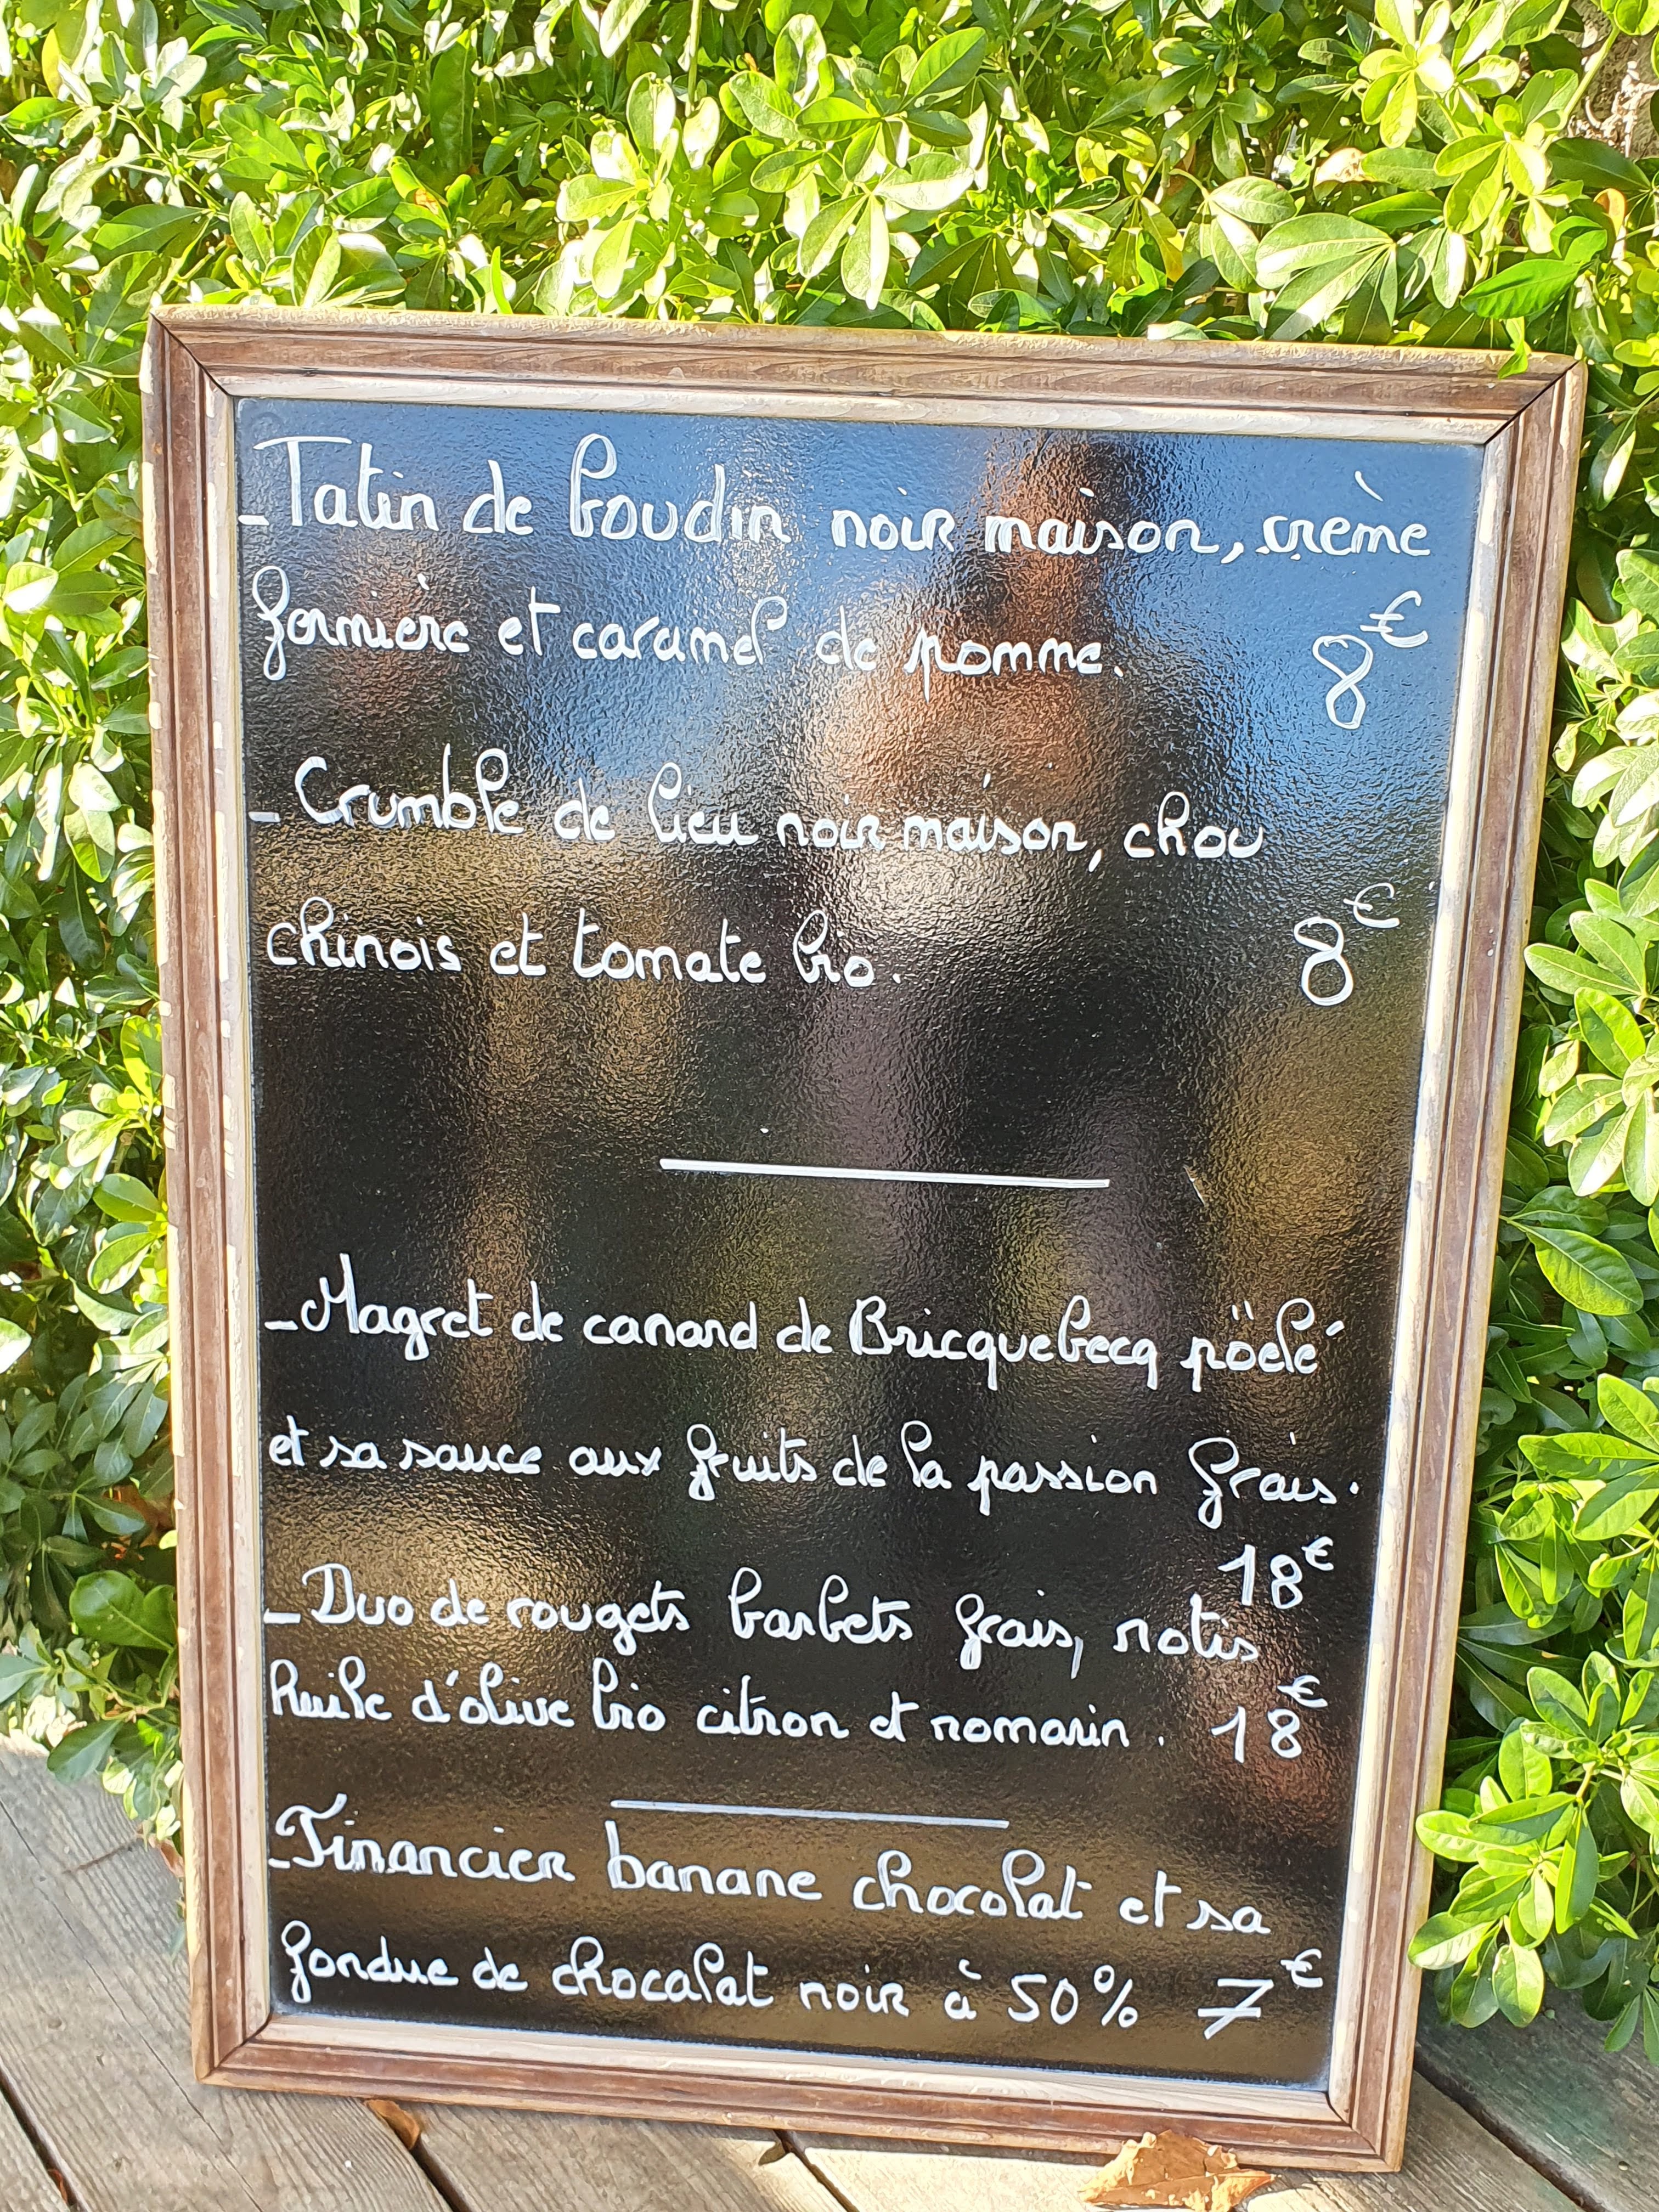 - Tatin de boudin noir maison, crème
fermière et caramel de pomme. 8€
- Crumble de lieu noir maison, chou
chinois et tomate bio. 8€
- Magret de canard de Bricquebecq pöelé
et sa sauce aux fruits de la passion frais.
18€
- Duo de rougets barbets frais, rotis
huile d'olive bio citron et romarin. 18€
- Financier banane chocolat et sa
fondue de chocolat noir à 50% 7€